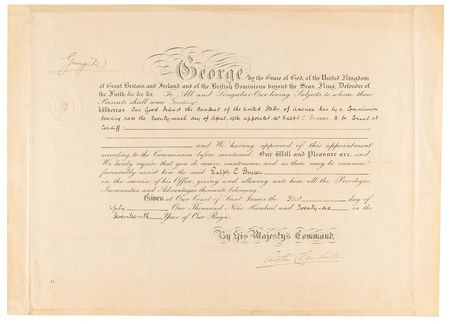 George R.I.
George by the Grace of God, of the United Kingdom
of Great Britain and Ireland, and of the British Dominions beyond the Seas, King, Defender of
the Faith, &c. &c. &c. To All and Singular Our loving Subjects to whom these
Presents shall come Greeting!
Whereas Our Good Friend the President of the United States of America has by a Commission
bearing date the Twenty-ninth day of April, appointed Mr Ralph C. Busser to be Consul at
Cardiff
and We having approved of this appointment
according to the Commission before mentioned, Our Will and Pleasure are, and
We hereby require that you do receive, countenance, and as there may be occasion,
favourably assist him the said Ralph C. Busser
in the exercise of his Office, giving and allowing unto him all the Privileges,
Immunities and Advantages thereunto belonging.
Given at Our Court of Saint James the First day of
July One Thousand Nine Hundred and Twenty-six in the
Seventeenth Year of Our Reign.
By His Majesty's Command,